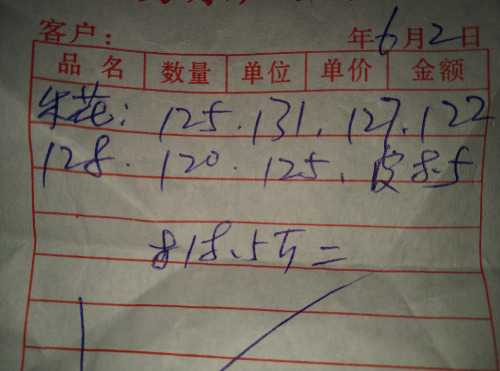 客户： 年6月2日
品名 数量 单位 单价 金额
花: 125. 131. 127. 122
128. 120. 125. 皮8.5
818.5斤=